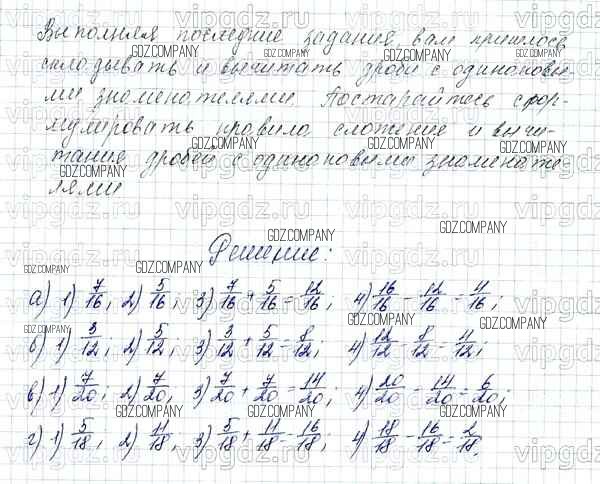 Выполняя последние задания вам пришлось
складывать и вычитать дроби с одинаковы-
ми знаменателями. Постарайтесь сфор-
мулировать правила сложение и вычи-
тания дробей с одинаковыми знаменате-
лями
Решение:
а) 1) 7/16; 2) 5/16; 3) 7/16 + 5/16 = 12/16; 4) 16/16 - 12/16 = 4/16;
б) 1) 3/12; 2) 5/12; 3) 3/12 + 5/12 = 8/12; 4) 12/12 - 8/12 = 4/12;
в) 1) 7/20; 2) 7/20; 3) 7/20 + 7/20 = 14/20; 4) 20/20 - 14/20 = 6/20;
г) 1) 5/18; 2) 11/18; 3) 5/18 + 11/18 = 16/18; 4) 18/18 - 16/18 = 2/18.